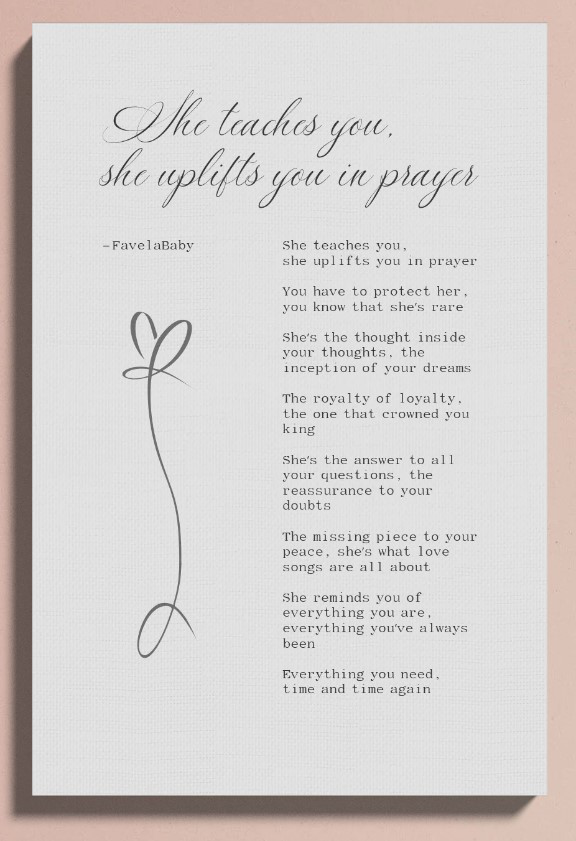 She teaches you,
she uplifts you in prayer
-FavelaBaby
She teaches you,
she uplifts you in prayer
You have to protect her,
you know that she's rare
She's the thought inside
your thoughts, the
inception of your dreams
The royalty of loyalty,
the one that crowned you
king
She's the answer to all
your questions, the
reassurance to your
doubts
The missing piece to your
peace, she's what love
songs are all about
She reminds you of
everything you are,
everything you've always
been
Everything you need,
time and time again